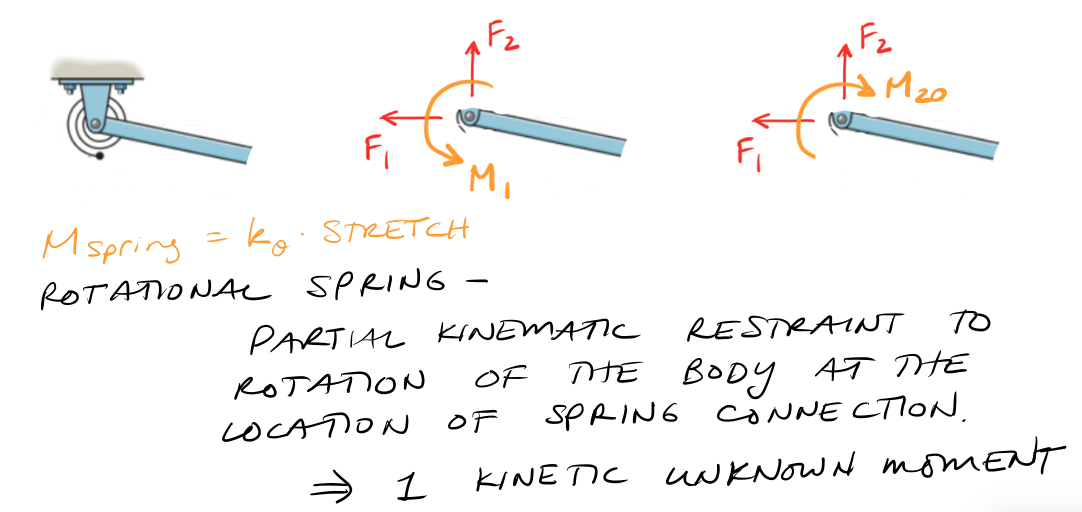 F₂ F₂
M₂₀
F₁ F₁
M₁
M spring = kθ · STRETCH
ROTATIONAL SPRING –
PARTIAL KINEMATIC RESTRAINT TO
ROTATION OF THE BODY AT THE
LOCATION OF SPRING CONNECTION.
⇒ 1 KINETIC UNKNOWN MOMENT